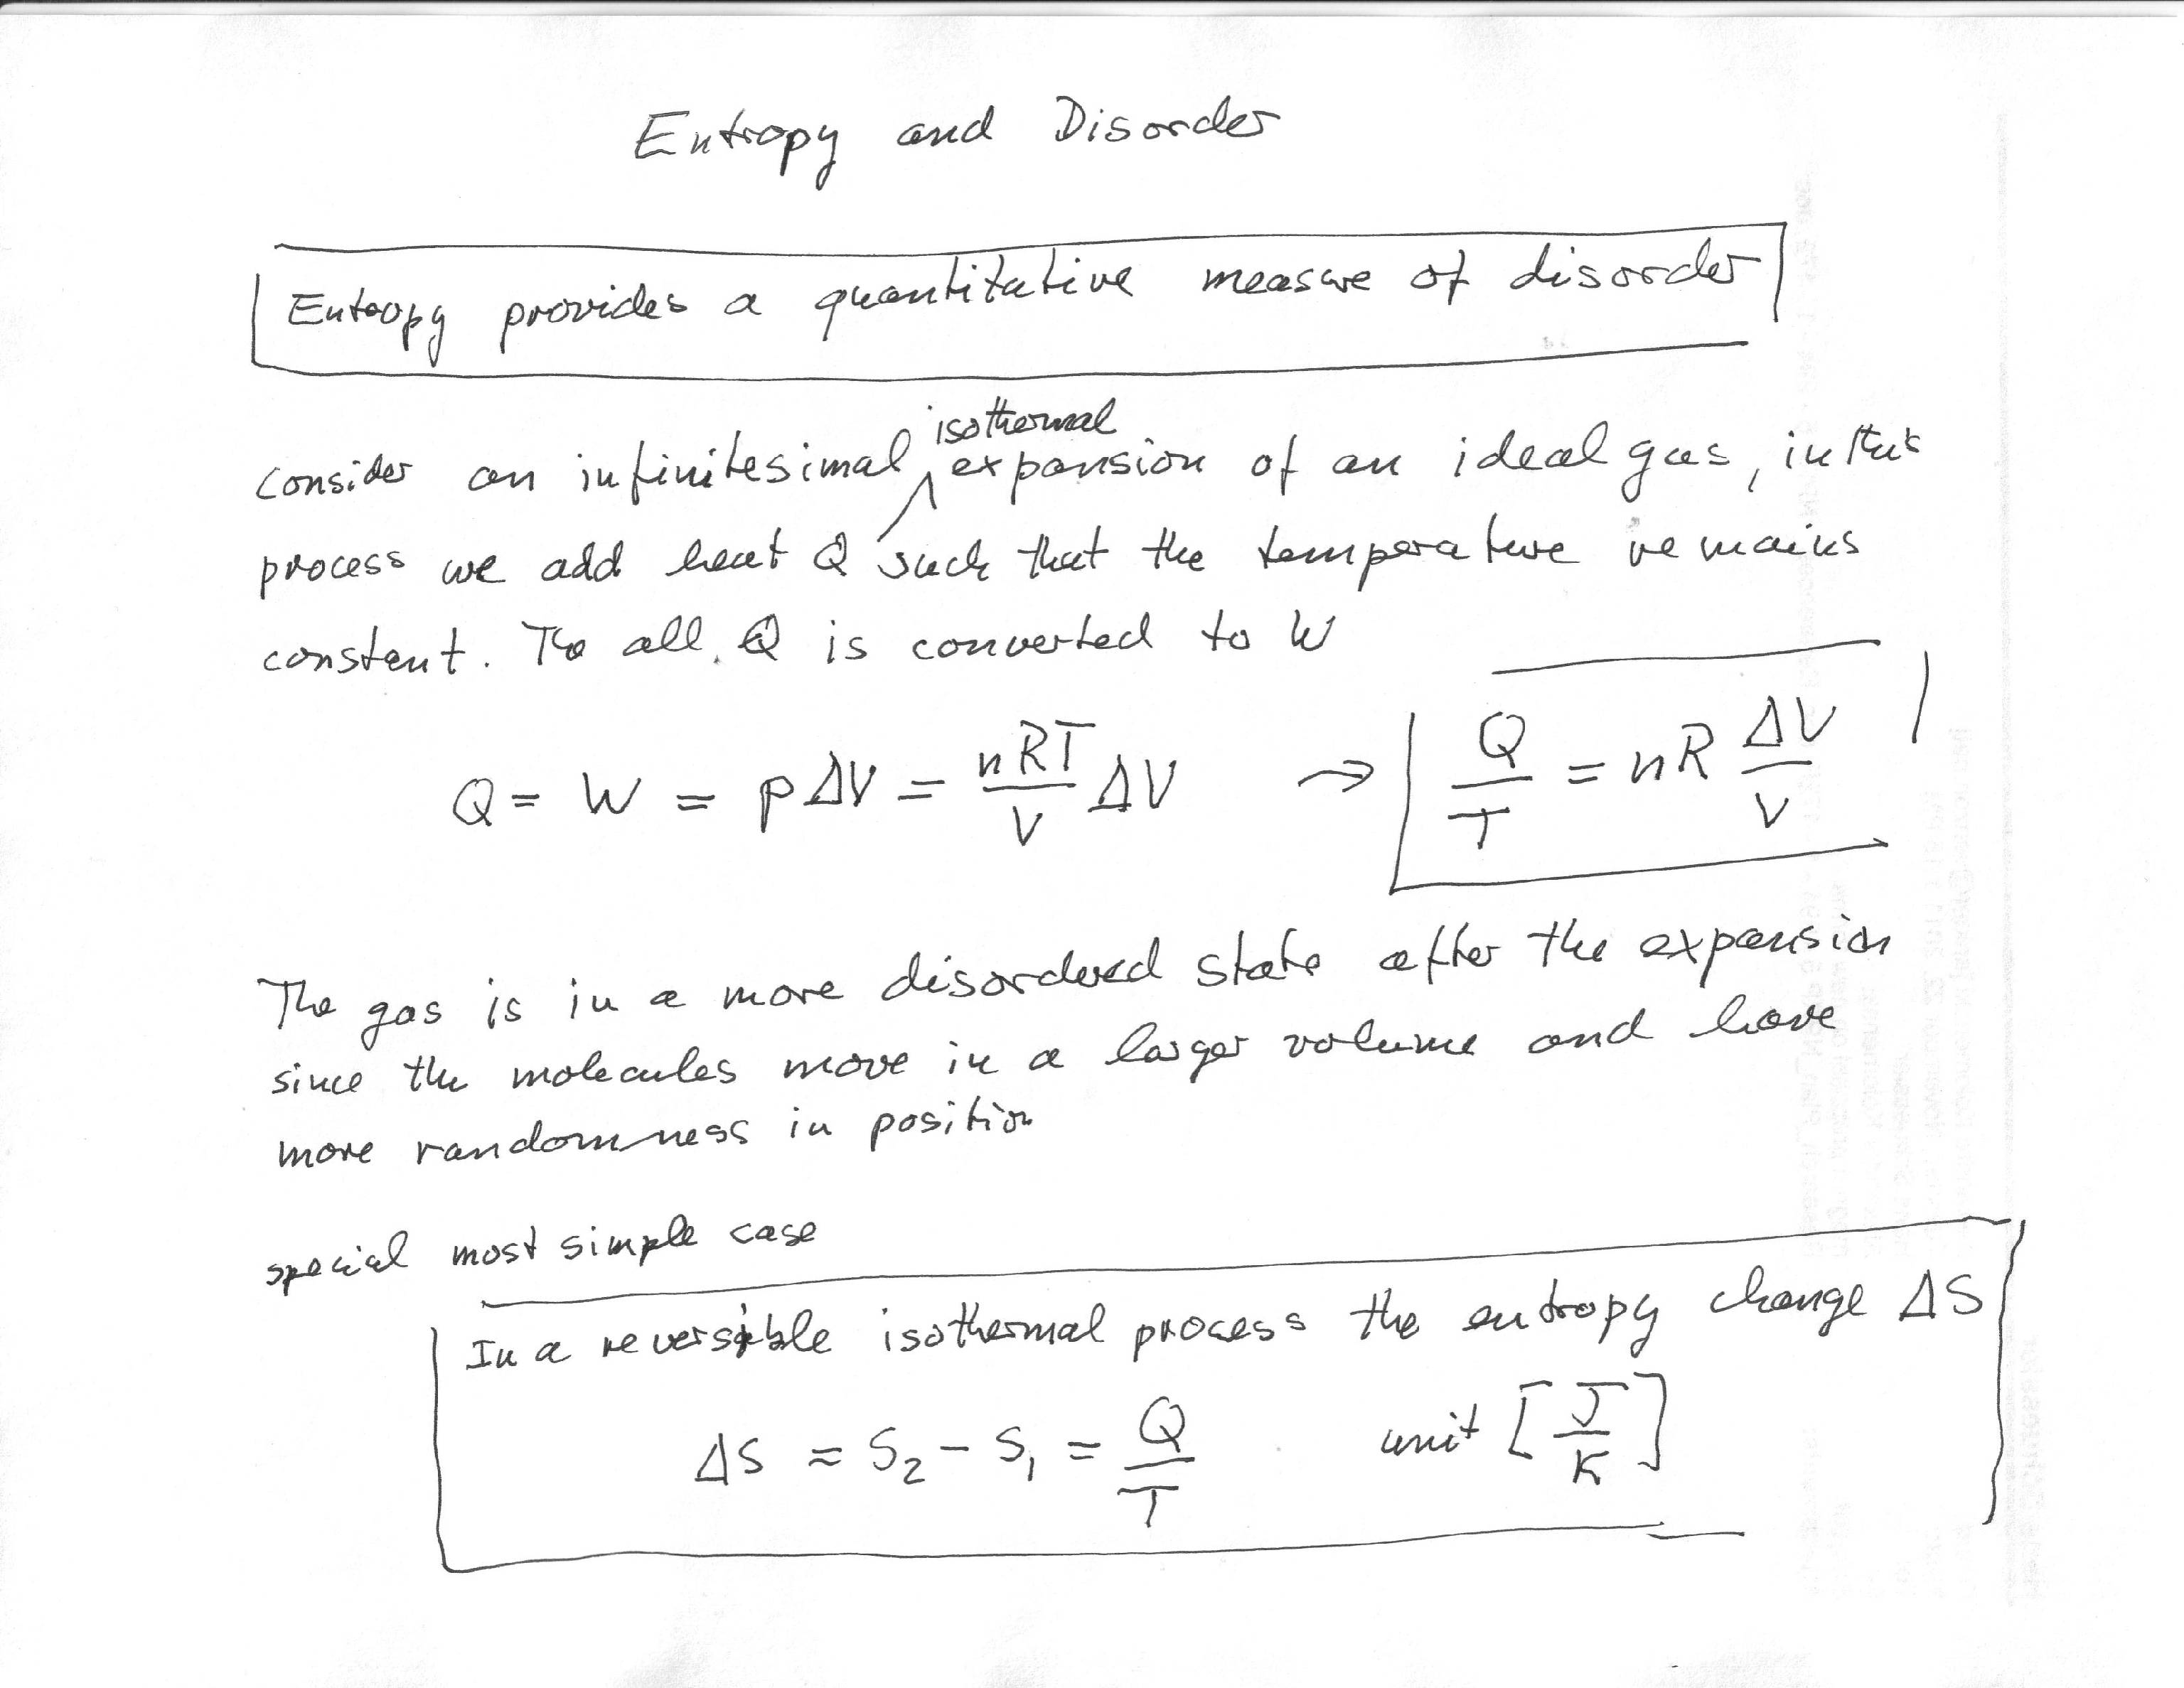 Entropy and Disorder
Entropy provides a quantitative measure of disorder
isothermal
consider an infinitesimal expansion of an ideal gas, in this
process we add heat Q such that the temperature remains
constant. The all Q is converted to W
Q = W = pΔV = nRT/V ΔV → Q/T = nR ΔV/V
The gas is in a more disordered state after the expansion
since the molecules move in a larger volume and have
more randomness in position
special most simple case
In a reversible isothermal process the entropy change ΔS
ΔS = S₂ - S₁ = Q/T unit [J/K]